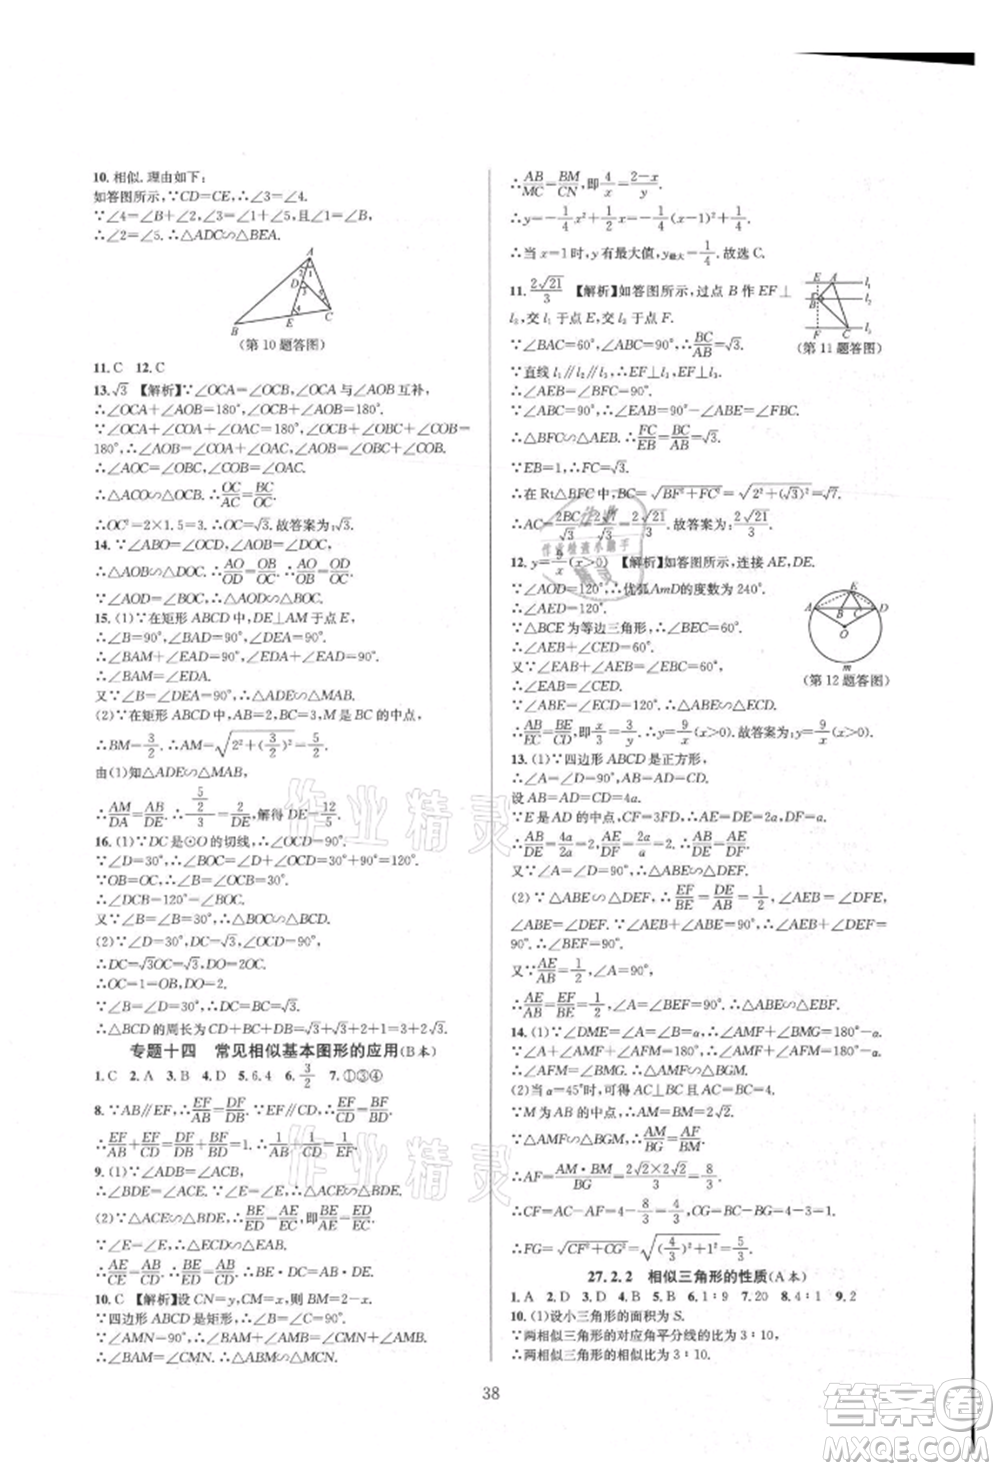 10.相似.理由如下:
如答图所示,∵CD=CE,∴∠3=∠4.
∵∠4=∠B+∠2,∠3=∠1+∠5,且∠B=∠1,
∴∠2=∠5.∴△ADC∽△BEA.
(第10题答图)
11.C 12.C
13.√3 【解析】∵∠OCA=∠OCB,∠OCA与∠AOB互补,
∴∠OCA+∠AOB=180°,∠OCB+∠AOB=180°.
∵∠OCA+∠COA+∠OAC=180°,∠BOC+∠OCB+∠OBC=
180°,∠AOB=∠COA+∠BOC,
∴∠AOC=∠OBC,∠COB=∠OAC.
∴△ACO∽△OCB.∴OC/AC=BC/OC.
∴OC²=2×1.5=3.∴OC=√3.故答案为√3.
14.∵∠ABO=∠CDO,∠AOB=∠COD,
∴△AOB∽△COD.∴AO/OD=OB/OC.∴AO/OB=OD/OC.
∵∠AOD=∠BOC,∴△AOD∽△BOC.
15.(1)∵在矩形ABCD中,DE⊥AM于点E,
∴∠B=90°,∠BAD=90°,∠DEA=90°.
∴∠BAM+∠EAD=90°,∠EDA+∠EAD=90°.
∴∠BAM=∠EDA.
又∵∠B=∠DEA=90°,∴△ADE∽△MAB.
(2)∵在矩形ABCD中,AB=2,BC=3,M是BC的中点,
∴BM=3/2.∴AM=√(2²+(3/2)²)=5/2.
由(1)知△ADE∽△MAB,
∴AM/DA=AB/DE.∴(5/2)/3=2/DE,解得DE=12/5.
16.(1)∵DC是⊙O的切线,∴∠OCD=90°.
∵∠D=30°,∴∠BOC=∠D+∠OCD=30°+90°=120°.
∵OB=OC,∴∠B=∠OCB=30°.
∴∠DCB=120°=∠BOC.
又∵∠B=∠B=30°,∴△BOC∽△BCD.
(2)∵∠D=30°,DC=√3,∠OCD=90°,
∴DC=√3OC=√3.
∴OC=1=OB,DO=2.
∵∠B=∠D=30°,∴BC=DC=√3.
∴△BCD的周长为CD+BC+DB=√3+√3+2+1=3+2√3.
专题十四 常见相似基本图形的应用(B本)
1.C 2.A 3.B 4.D 5.6.4 6.3/2 7.①③④
8.∵AB∥EF,∴EF/AB=DF/DB.∵EF∥CD,∴EF/CD=BF/BD.
∴EF/AB+EF/CD=DF/DB+BF/BD=BD/BD=1.∴1/AB+1/CD=1/EF.
9.(1)∵∠ADB=∠ACB,
∴∠BDE=∠ACE.又∵∠E=∠E,∴△ACE∽△BDE.
(2)∵△ACE∽△BDE,∴BE/ED=AE/EC,即BE/AE=ED/EC.
∵∠E=∠E,∴△ECD∽△EAB.
∴AE/CE=AB/CD.∴AE·CD=AB·CE.
10.C 【解析】设CN=y,CM=x,则BM=2-x.
∵四边形ABCD是矩形,∴∠B=∠C=90°.
又∵∠BAM=∠CMN,∴△BAM∽△CMN.
∴AB/MC=BM/CN,即4/x=(2-x)/y.
∴y=-1/4x²+1/2x=-1/4(x-1)²+1/4.
∴当x=1时,y有最大值,y最大=1/4.故选C.
11.2√21/3 【解析】如答图所示,过点B作EF⊥
l₃,交l₁于点E,交l₃于点F.
∵∠BAC=60°,∠ABC=90°,∴BC/AB=√3.
∵直线l₁∥l₂∥l₃,∴EF⊥l₁,EF⊥l₃.
∴∠AEB=∠BFC=90°.
∵∠ABC=90°,∴∠EAB=90°-∠ABE=∠FBC.
∴△BFC∽△AEB.∴FC/EB=BC/AB=√3.
∵EB=1,∴FC=√3.
∴在Rt△BFC中,BC=√(BF²+FC²)=√(2²+(√3)²)=√7.
∴AC=2BC/√3=2√7/√3=2√21/3.故答案为:2√21/3.
(第11题答图)
12.y=9/x(x>0) 【解析】如答图所示,连接AE,DE.
∵∠AOD=120°,∴优弧AmD的度数为240°.
∴∠AED=120°.
∵△BCE为等边三角形,∴∠BEC=60°.
∴∠AEB+∠CED=60°.
又∵∠EAB+∠AEB=∠EBC=60°,
∴∠EAB=∠CED.
∵∠ABE=∠ECD=120°.∴△ABE∽△ECD.
∴AB/EC=BE/CD,即x/3=3/y.∴y=9/x(x>0).故答案为:y=9/x(x>0).
(第12题答图)
13.(1)∵四边形ABCD是正方形,
∴∠A=∠D=90°,AB=BC=CD=AD.
设AB=AD=CD=4a.
∵E是AD的中点,CF=3FD,∴AE=DE=2a,DF=a.
∴AB/DE=4a/2a=2,AE/DF=2a/a=2.∴AB/DE=AE/DF.
又∵∠A=∠D=90°,∴△ABE∽△DEF.
(2)∵△ABE∽△DEF,∴EF/BE=DE/AB=1/2,∠AEB=∠DFE,
∠ABE=∠DEF.∵∠ABE+∠AEB=90°,∴∠AEB+∠DEF=
90°.∴∠BEF=90°.
又∵AE/AB=1/2,∠A=90°,
∴AE/AB=EF/BE=1/2,∠A=∠BEF=90°.∴△ABE∽△EBF.
14.(1)∵∠DME=∠A=∠B=α,∴∠AMF+∠BMG=180°-α.
∵∠A=α,∴∠AMF+∠AFM=180°-α.∴∠AFM=∠BMG.
∴△AMF∽△BGM.
(2)当α=45°时,可得AC⊥BC且AC=BC=4.
∵M为AB的中点,∴AM=BM=2√2.
∵△AMF∽△BGM,∴AM/BG=AF/BM.
∴AF=AM·BM/BG=(2√2×2√2)/3=8/3.
∴CF=AC-AF=4-8/3=4/3,CG=BC-BG=4-3=1.
∴FG=√(CF²+CG²)=√((4/3)²+1²)=5/3.
27.2.2 相似三角形的性质(A本)
1.A 2.A 3.B 4.D 5.B 6.1:9 7.20 8.4:1 9.2
10.(1)设小三角形的面积为S.
∵两相似三角形的对应角平分线的比为3:10,
∴两相似三角形的相似比为3:10.
38
作业精灵
答案卷
MXQE.COM